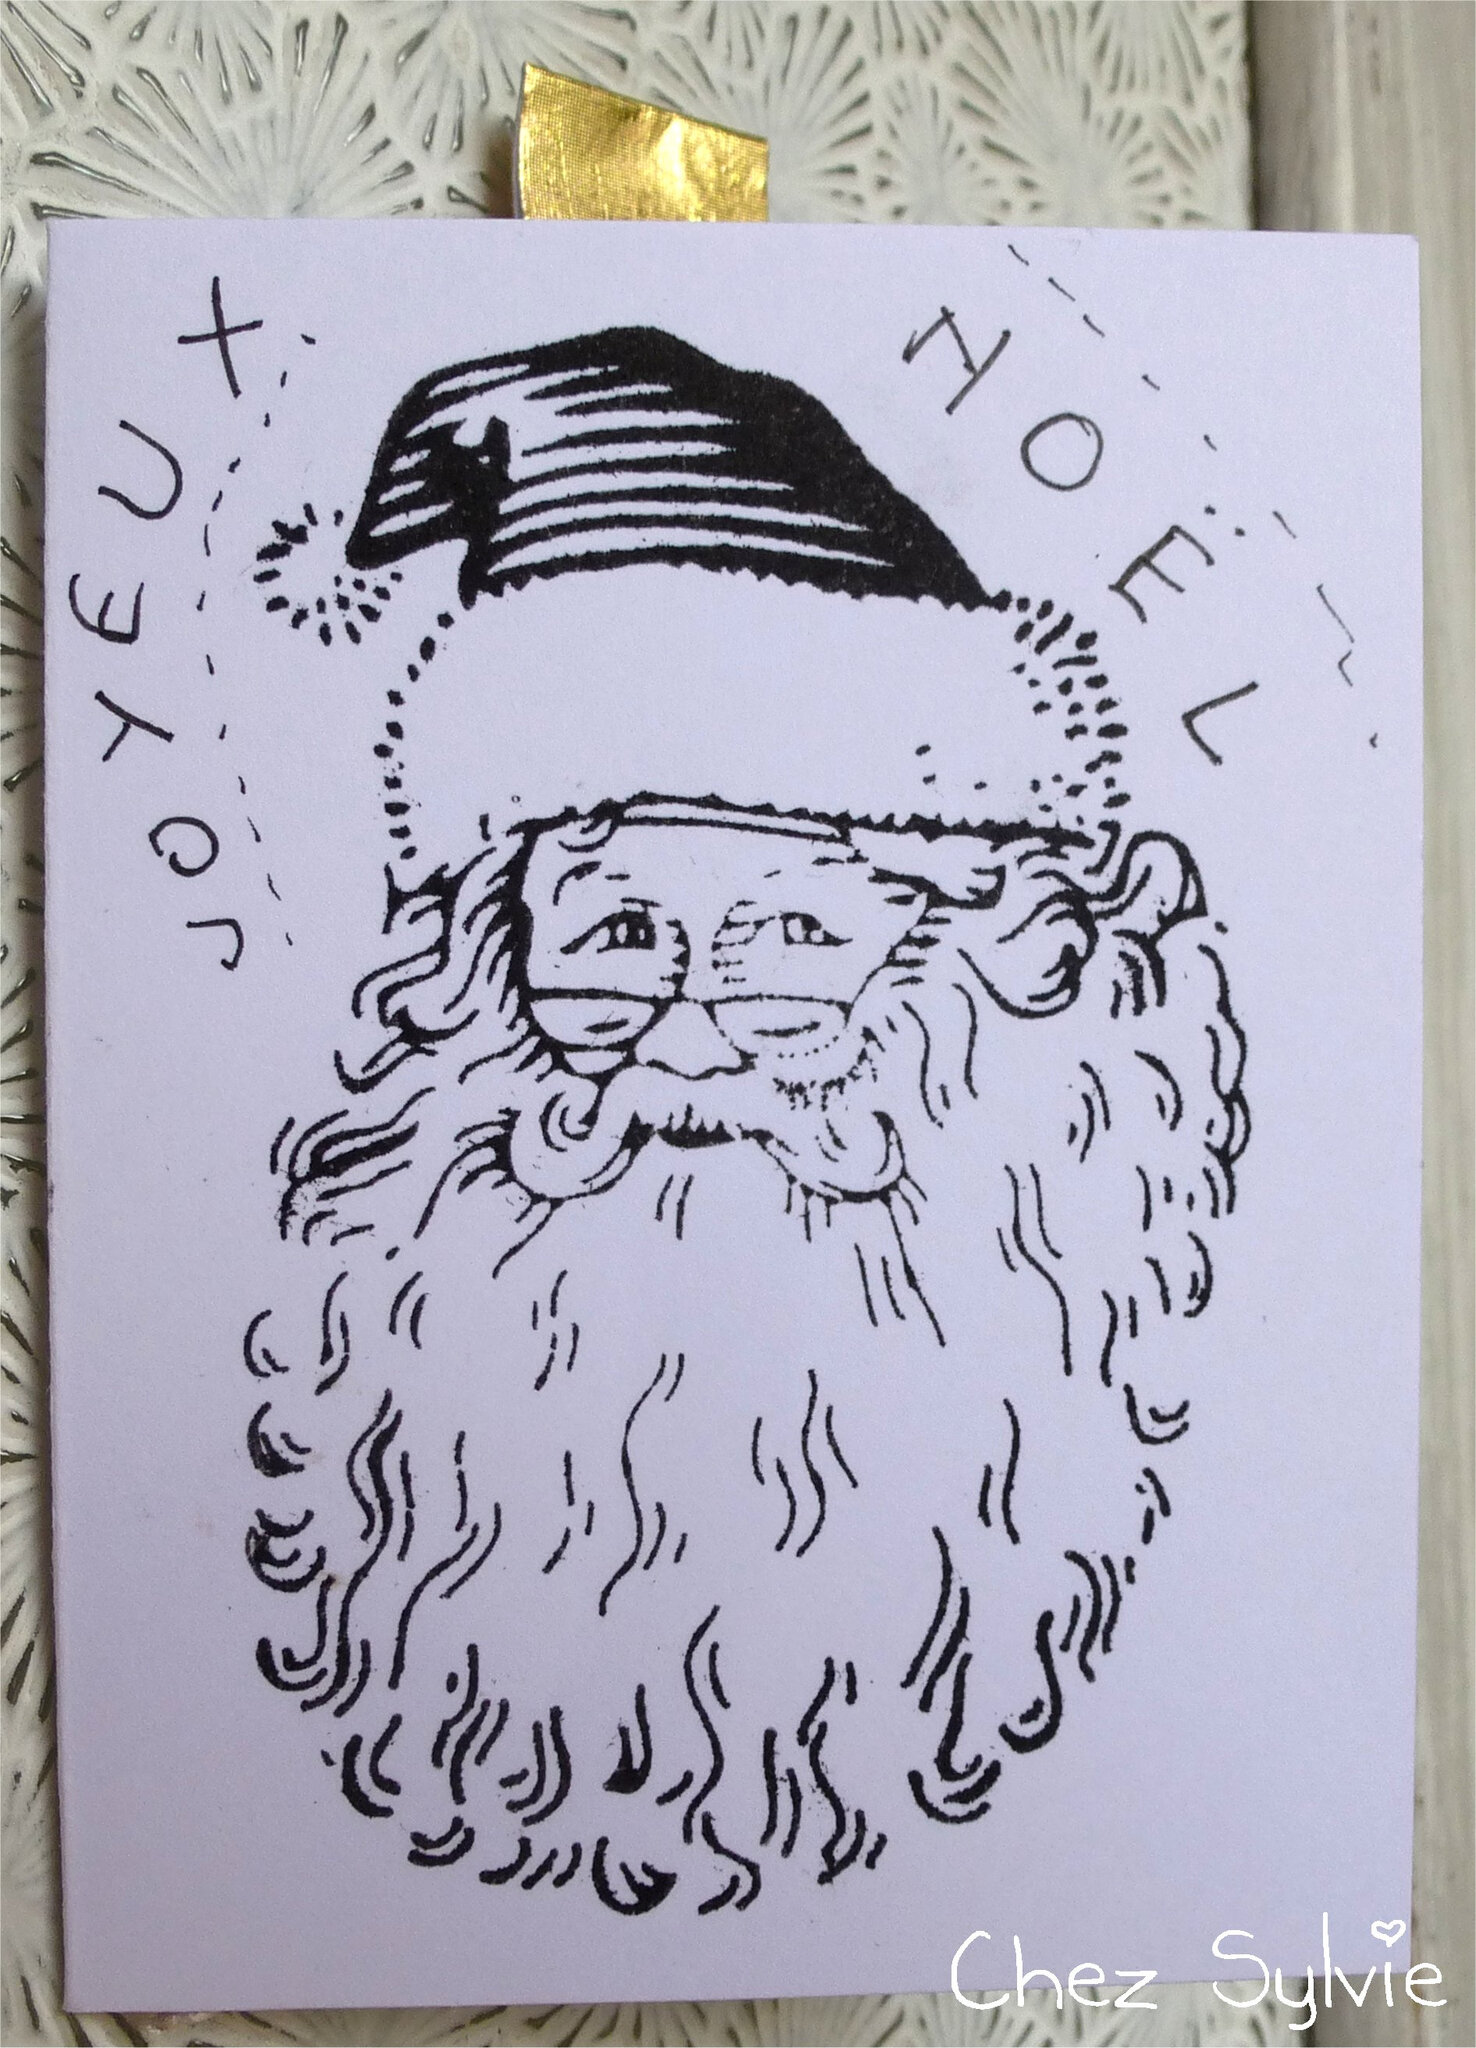 JOYEUX
NOËL
Chez Sylvie